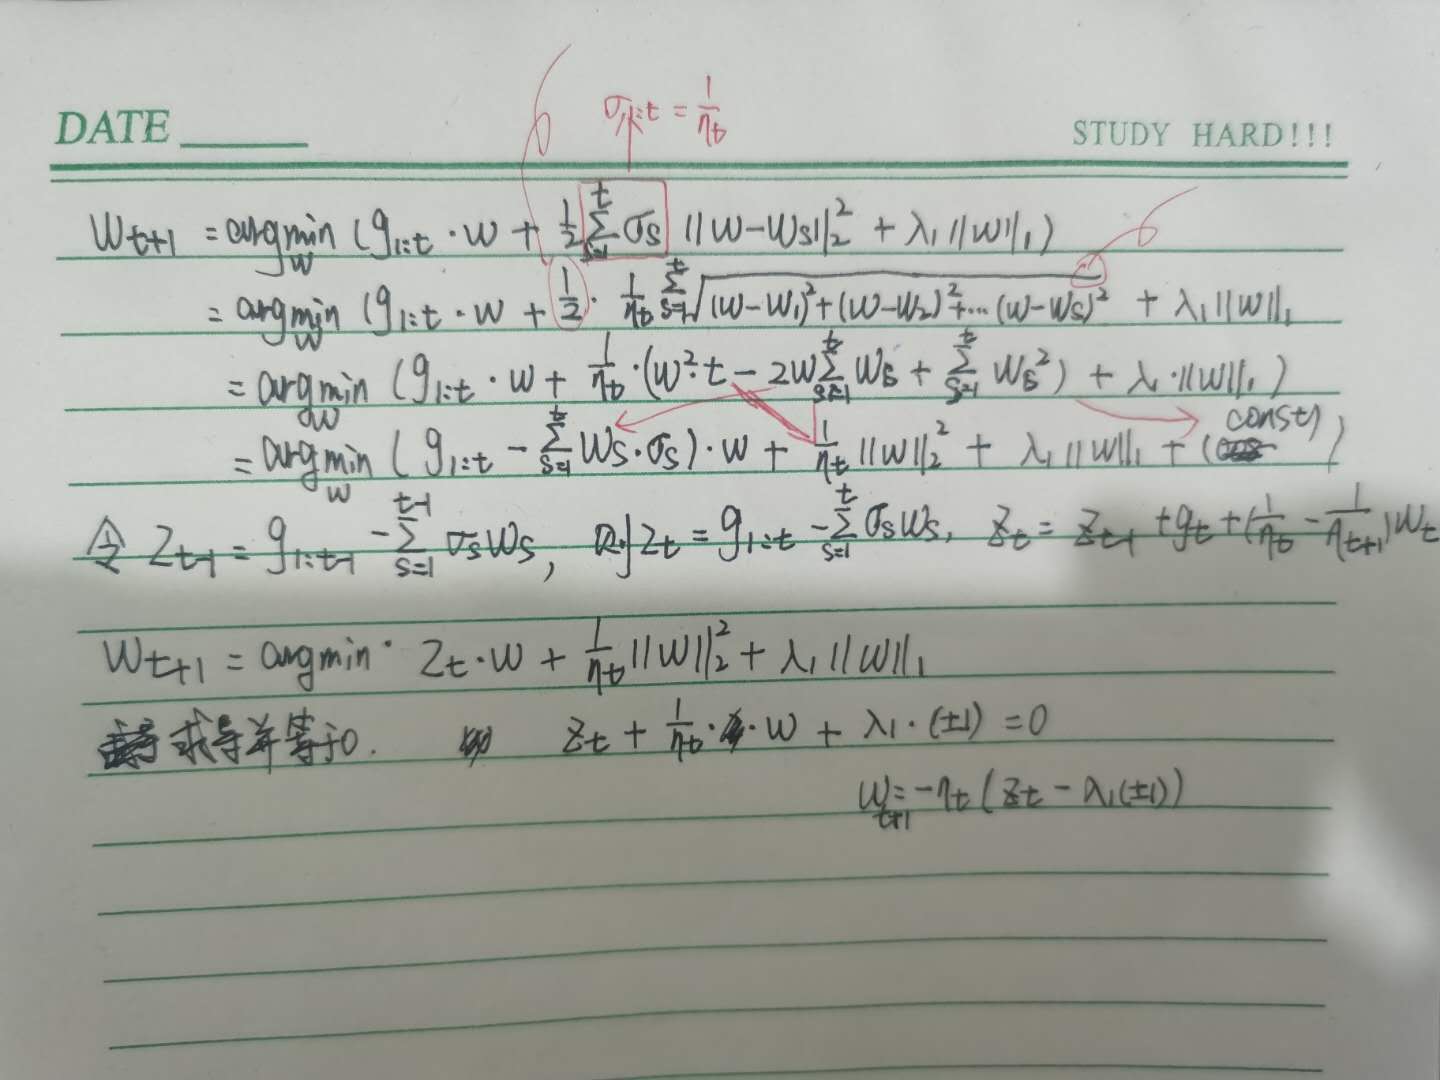 σ₁:t = 1/ηt
DATE
STUDY HARD!!!
Wt+1 = argmin_w (g₁:t · w + 1/2 Σ_{s=1}^{t} σs ||w-ws||₂² + λ₁||w||₁)
= argmin_w (g₁:t · w + 1/2 · 1/ηt Σ_{s=1}^{t} √((w-w₁)²+(w-w₂)²+...(w-ws)²) + λ₁||w||₁
= argmin_w (g₁:t · w + 1/ηt · (w²·t - 2w Σ_{s=1}^{t} ws + Σ_{s=1}^{t} ws²) + λ₁·||w||₁)
= argmin_w (g₁:t - Σ_{s=1}^{t} ws·σs)·w + 1/ηt ||w||₂² + λ₁||w||₁ + (const)
令 Zt-1 = g₁:t-1 - Σ_{s=1}^{t-1} σsws, 则 Zt = g₁:t - Σ_{s=1}^{t} σsws, Zt = Zt-1 + gt + (1/ηt - 1/ηt+1)wt
Wt+1 = argmin Zt·w + 1/ηt ||w||₂² + λ₁||w||₁
求导并等于0. Zt + 1/ηt · w + λ₁·(±1) = 0
wt+1 = -ηt(Zt - λ₁(±1))